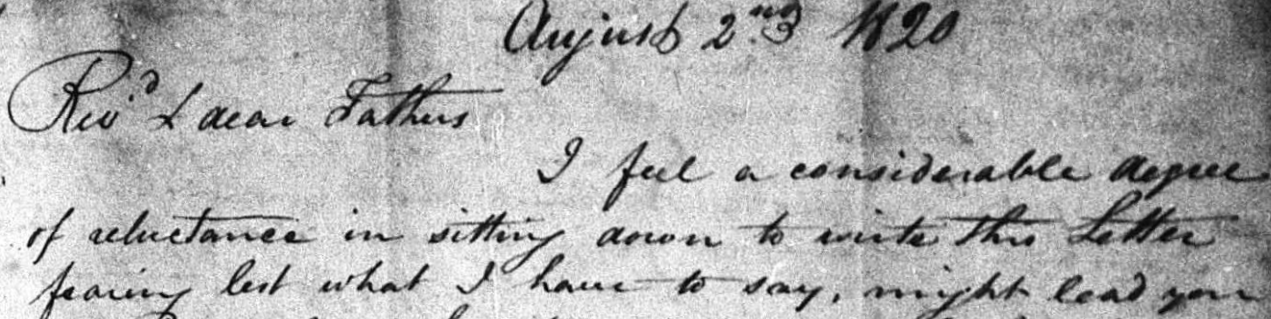 August 2nd 1820
Revd & dear Fathers
I feel a considerable degree
of reluctance in sitting down to write this Letter
fearing lest what I have to say, might lead you